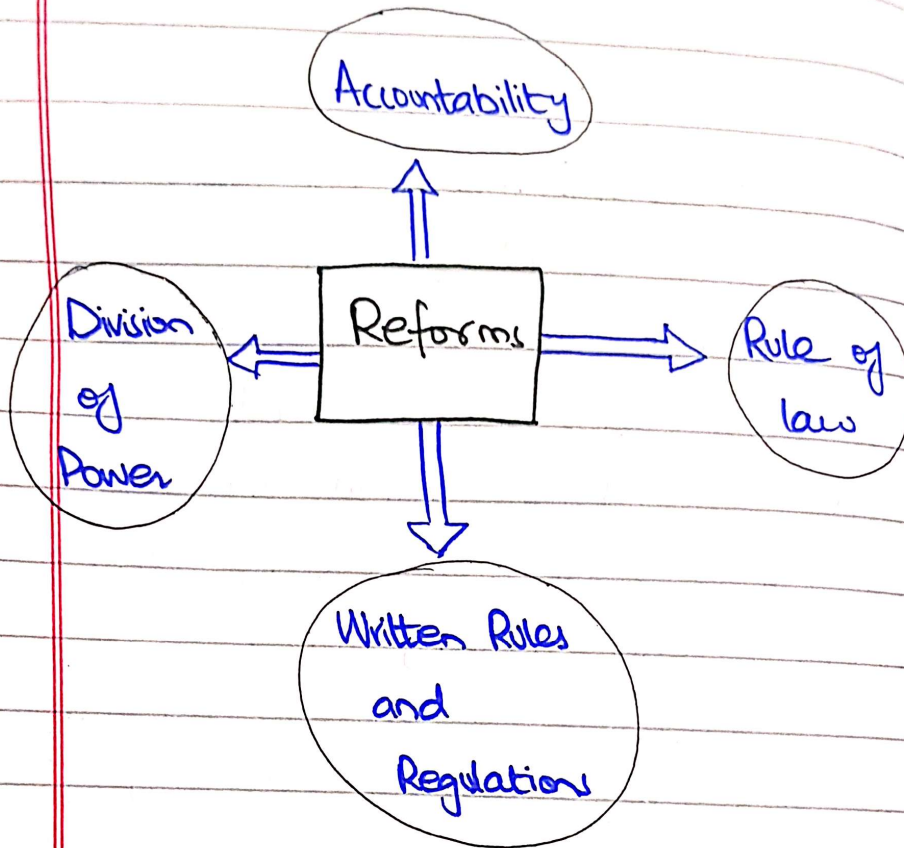 Accountability
Division
of
Power
Reforms
Rule of
law
Written Rules
and
Regulations